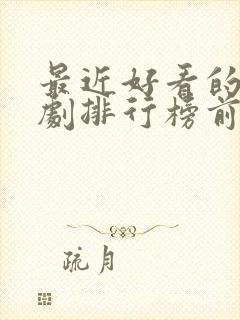 最近好看的
劇排行榜前
疏月